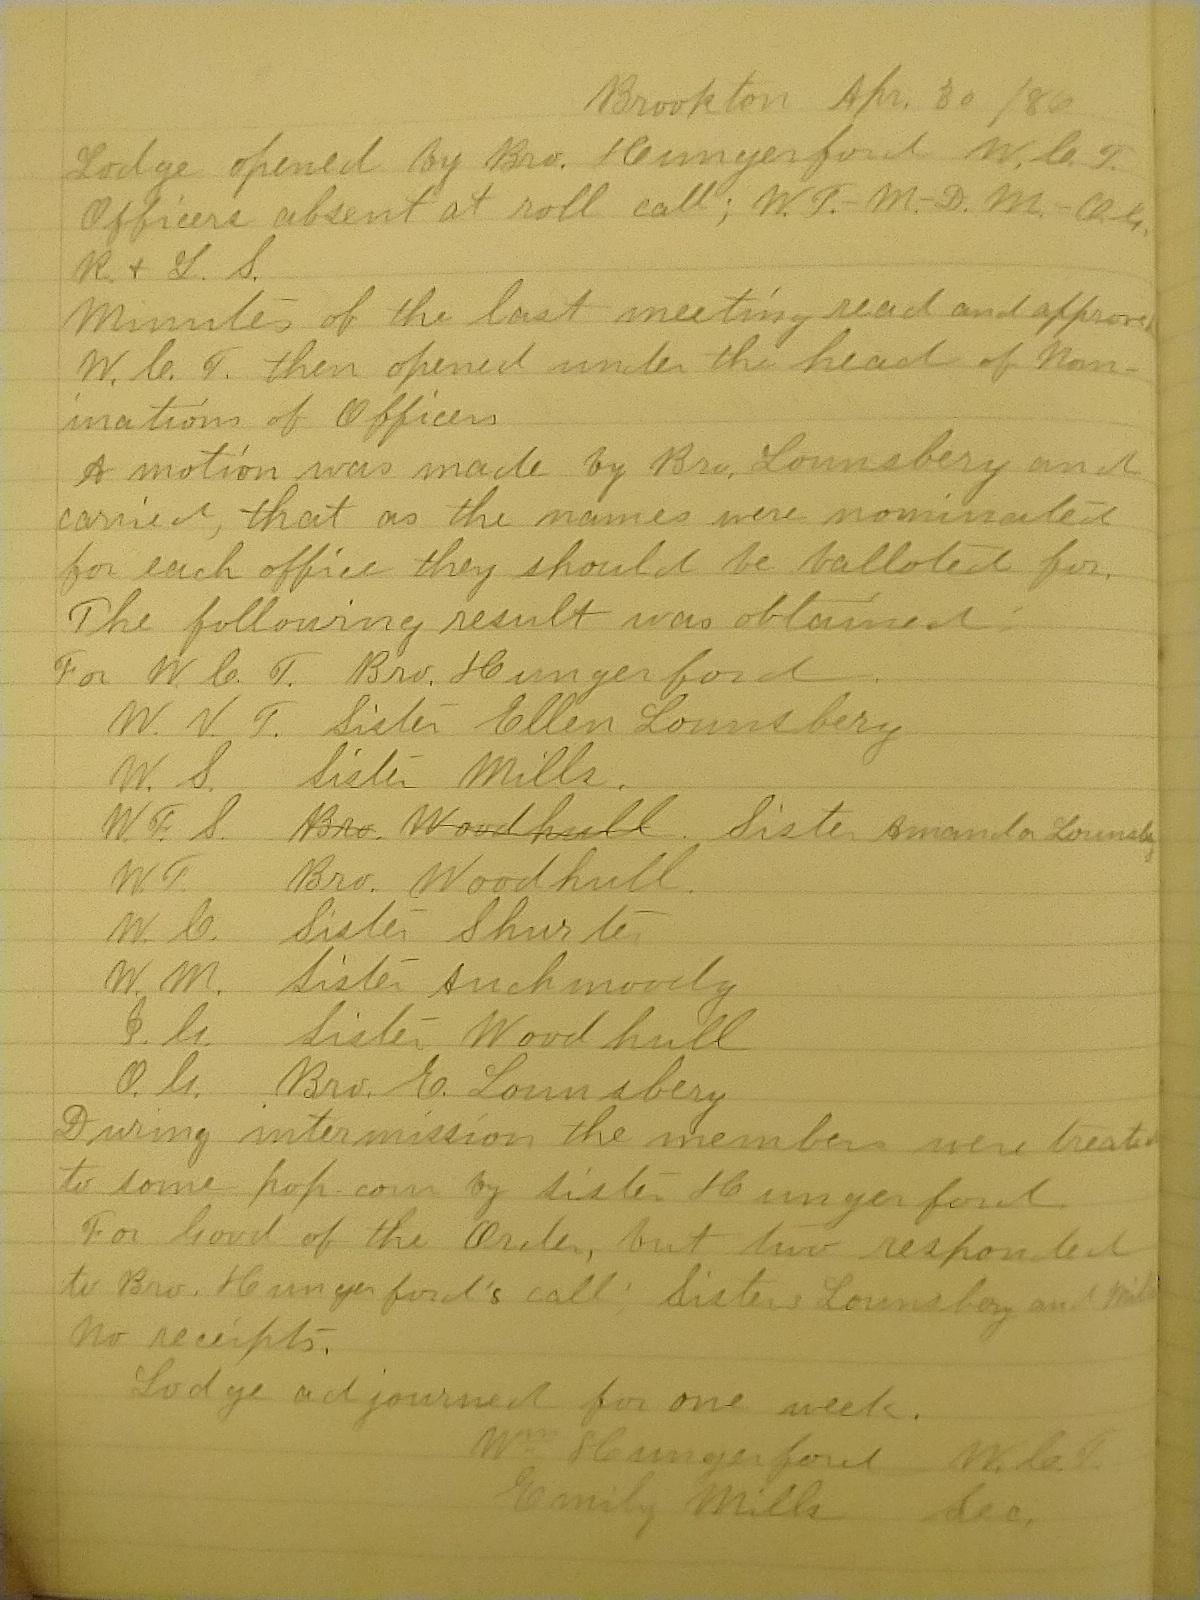 Brookton Apr. 30 /86
Lodge opened by Bro. Hungerford W. C. T.
Officers absent at roll call; W. T. - M. - D. M. - O. G.
R. + L. S.
Minutes of the last meeting read and approved
W. C. T. then opened under the head of Nom-
inations of Officers
A motion was made by Bro. Lounsbery and
carried, that as the names were nominated
for each office they should be balloted for.
The following result was obtained:
For W. C. T. Bro. Hungerford.
W. V. T. Sister Ellen Lounsbery
W. S. Sister Mills.
W. F. S. Bro. Woodhull. Sister Amanda Lounsby
W. T. Bro. Woodhull.
W. C. Sister Shurter
W. M. Sister Auchmoody
I. G. Sister Woodhull
O. G. Bro. E. Lounsbery
During intermission the members were treated
to some pop-corn by sister Hungerford
For Good of the Order, but two responded
to Bro. Hungerford's call; Sisters Lounsbery and Mills
No receipts.
Lodge adjourned for one week.
Wm Hungerford W. C. T.
Emily Mills Sec.